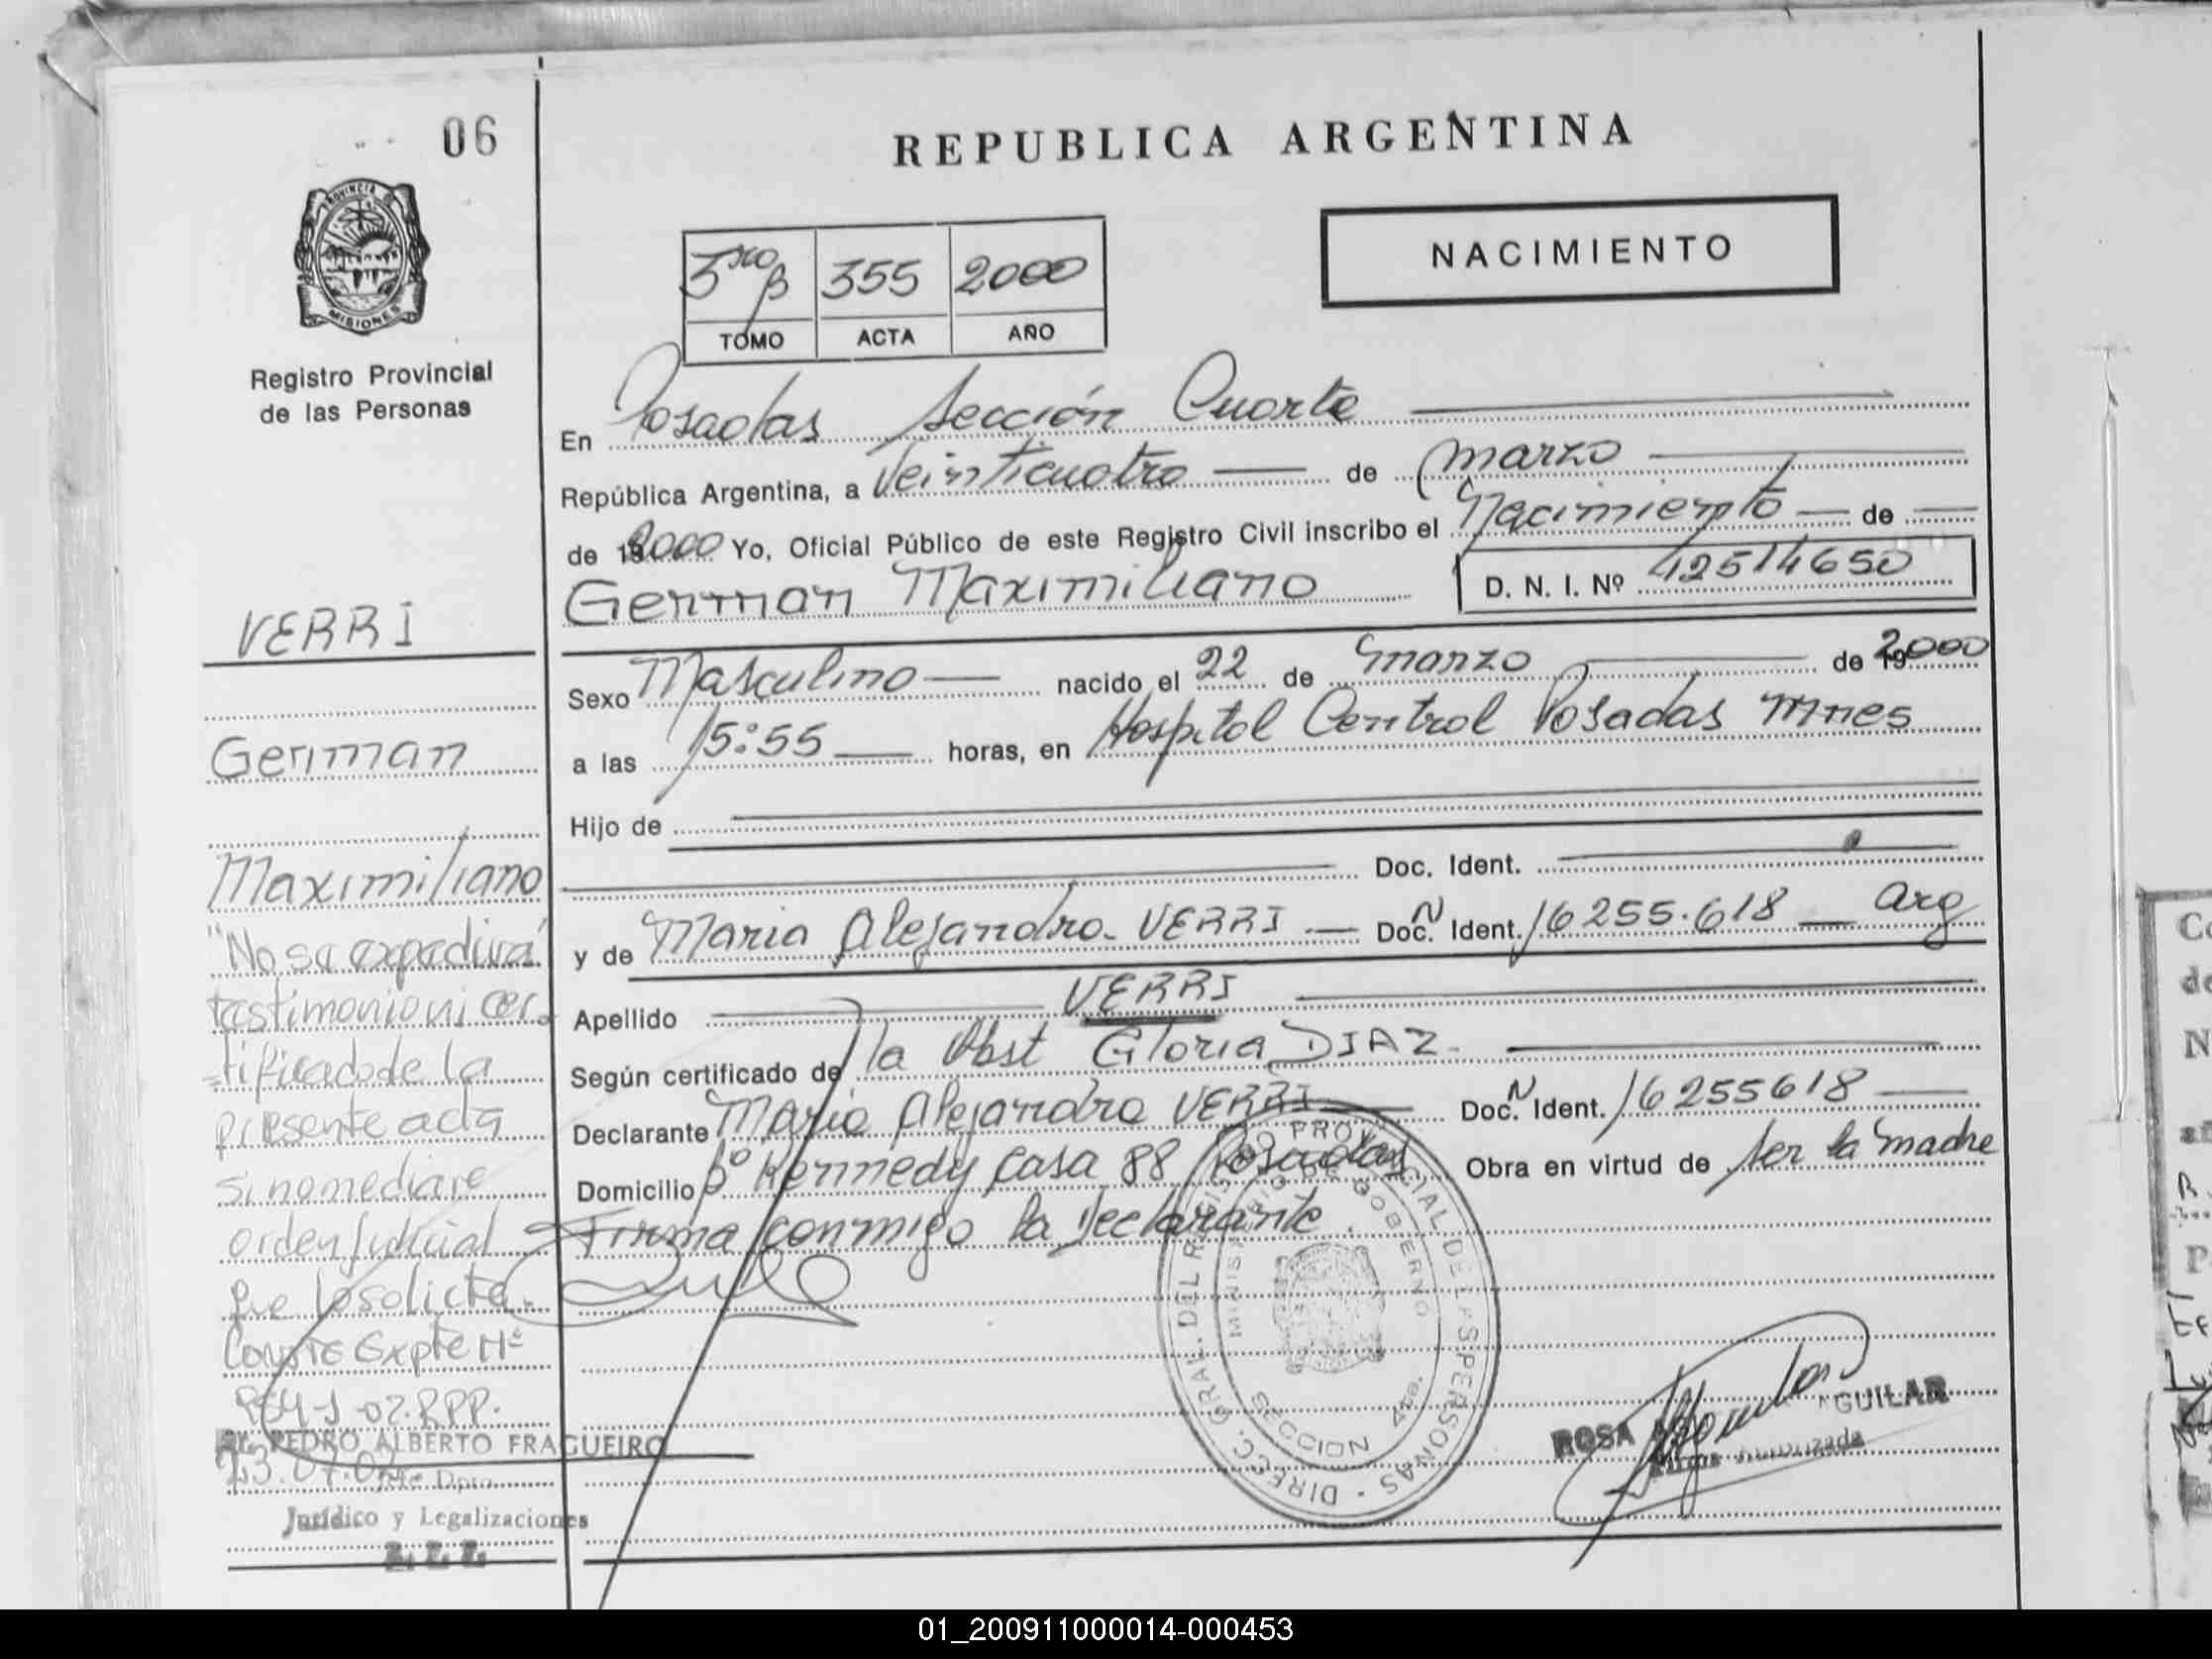 06
REPUBLICA ARGENTINA
PROVINCIA
MISIONES
Registro Provincial
de las Personas
3ro B 355 2000
TOMO ACTA AÑO
NACIMIENTO
En Posadas Sección Cuarta
República Argentina, a Veinticuatro de marzo
de 2000 Yo, Oficial Público de este Registro Civil inscribo el Nacimiento de
German Maximiliano D. N. I. Nº 42514650
Sexo Masculino nacido el 22 de marzo de 2000
a las 15:55 horas, en Hospital Central Posadas Mnes
Hijo de
Doc. Ident.
y de Maria Alejandra VERRI Doc. N Ident. 16255.618 Arg
Apellido VERRI
Según certificado de la Obst Gloria DIAZ
Declarante Maria Alejandra VERRI Doc. N Ident. 16255618
Domicilio Bº Kennedy Casa 88 Posadas Obra en virtud de ser la madre
Firma conmigo la declarante.
VERRI
German
Maximiliano
"No se expedirá
testimonio ni cer-
tificado de la
presente acta
si no mediare
orden Judicial
que lo solicite.
Conste Expte Nº
-02. RPP.
Dr. PEDRO ALBERTO FRAGUEIRO
23.07.02
Jfe Dpto.
Jurídico y Legalizaciones
DIRECC. GRAL. DEL REGISTRO PROVINCIAL DE LAS PERSONAS
MINISTERIO DE GOBIERNO
SECCION 4ta.
ROSA AGUILAR
Firma Autorizada
01_200911000014-000453